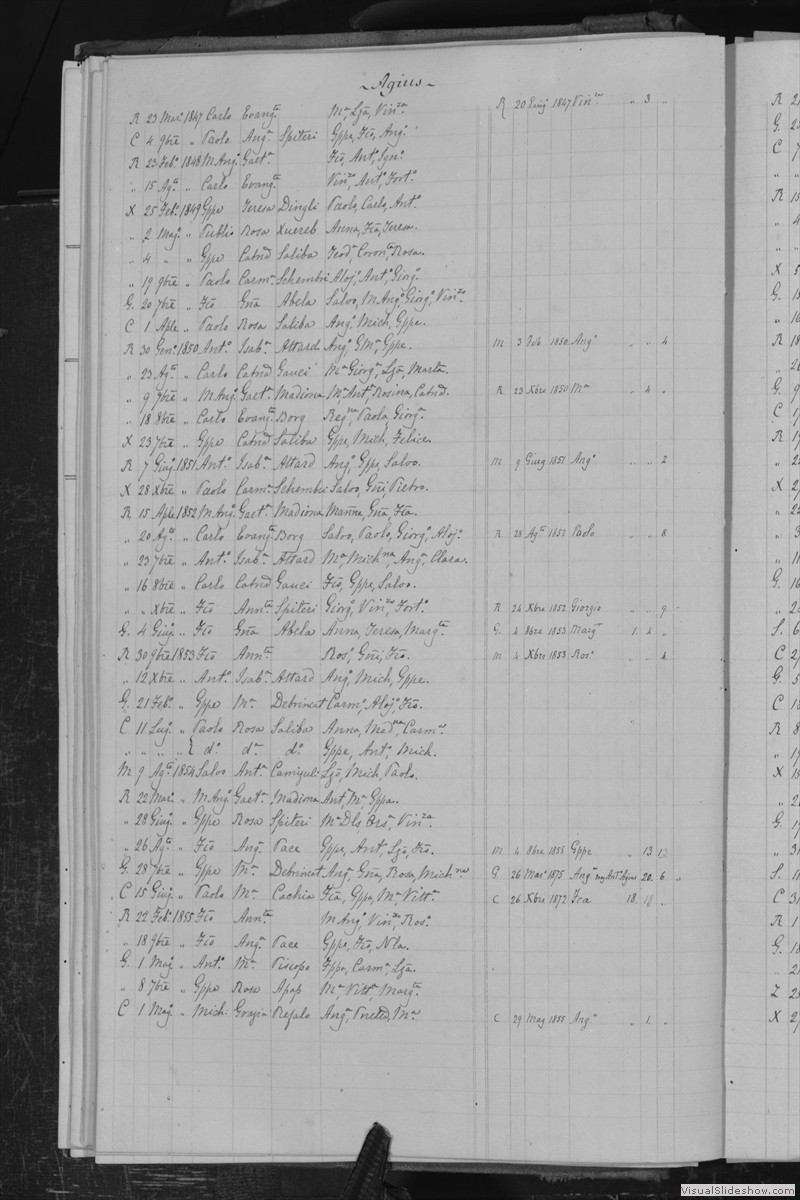 Agius
R 23 Mar. 1847 Carlo Evangta. Ma, Lza, Vinza. R 20 1847 Vinza " 3 "
C 4 9bre " Paolo Anga. Spiteri Gppe, Fco, Ango.
R 22 Febo. 1848 M Ango. Gaeta. Fco, Anto.
" 15 Agto. " Carlo Evangta. Vinzo, Anto. Forto.
X 25 Febo. 1849 Gppe Teresa Dingli Paolo, Carlo, Anto.
" 2 Mago. " Publio Rosa Xuereb Anna, Fca, Teresa.
" 4 " " Gppe Catnd Saliba Teodo, Coronta, Rosa.
" 19 9bre " Paolo Carma. Schembri Alojo, Anto, Giorgo.
G. 20 7bre " Fco Gna Abela Salvo, M Ango, Giorgo, Vinzo.
C 1 Aple " Paolo Rosa Saliba Ango, Mich, Gppe.
R 30 Geno. 1850 Anto. Isaba. Attard Ango, Gppe. M 3 Feb. 1850 Ango " " 4
" 23 Agto. " Carlo Catnd Gauci Ma Giorga, Lza, Marta.
" 9 7bre " M Ango. Gaeta. Madiona Ma Anta, Rosina, Catnd. R 23 Xbre 1850 Ma " 4 "
" 18 8bre " Carlo Evangta. Borg Regna, Paola, Giorga.
X 23 7bre " Gppe Catnd Saliba Gppe, Mich, Felice.
R 7 Giugo. 1851 Anto. Isaba. Attard Ango, Gppe, Salvo. M 9 Giug 1851 Ango " " 2
X 28 Xbre " Paolo Carma. Schembri Salvo, Gni, Pietro.
R 15 Aple 1852 M Ango. Gaeta. Madiona Marna, Gna, Fca.
" 20 Agto. " Carlo Evangta. Borg Salvo, Paolo, Giorgo, Alojo. R 28 Agto 1852 Paolo " " 8
" 23 7bre " Anto. Isaba. Attard Ma, Michna, Anga, Clara.
" 16 8bre " Carlo Catnd Gauci Fco, Gppe, Salvo.
" " Xbre " Fco Annta. Spiteri Giorgo, Vinzo, Forto. R 24 Xbre 1852 Giorgio " " 9
G. 4 Giugo. " Fco Gna Abela Anna, Teresa, Margta. G. 4 8bre 1853 Margta 1. 4 "
R 30 9bre 1853 Fco Annta. Roso, Gni, Fco. M 4 Xbre 1853 Roso " " 4
" 12 Xbre " Anto. Isaba. Attard Ango, Mich, Gppe.
G. 21 Febo. " Gppe Ma. Debrincat Carmo, Alojo, Fco.
C 11 Lugo. " Paolo Rosa Saliba Anna, Madna, Carma.
" " " " do. da. do. Gppe, Anto, Mich.
M 9 Agto. 1854 Salvo Anta. Camiguli Lzo, Mich, Paolo.
R 22 Mar. " M Ango. Gaeta. Madiona Anta, Ma Gppa.
" 28 Giugo. " Gppe Rosa Spiteri Ma Dls, Orsa, Vinza.
" 26 Agto. " Fco Anga. Pace Gppe, Anto, Lzo, Fco. M 4 8bre 1855 Gppe " 13 12
G. 28 7bre " Gppe Ma. Debrincat Anga, Gna, Rosa, Michna G. 26 Mar. 1875 Anga Anto Agius 20. 6 "
C 15 Giugo. " Paolo Ma. Cachia Fca, Gppa, Ma Vitta. C 26 Xbre 1872 Fca 18. 18 "
R 22 Febo. 1855 Fco Annta. M Ango, Vinzo, Roso.
" 18 9bre " Fco Anga. Pace Gppe, Fco, Nla.
G. 1 Mago. " Anto. Ma. Piscopo Gppa, Carma, Lza.
" 8 7bre " Gppe Rosa Apap Ma, Vitta, Margta.
C 1 Mago. " Mich: Grazia Refalo Anga, Ma C 29 Mag 1855 Anga " 1. "
VisualSlideshow.com